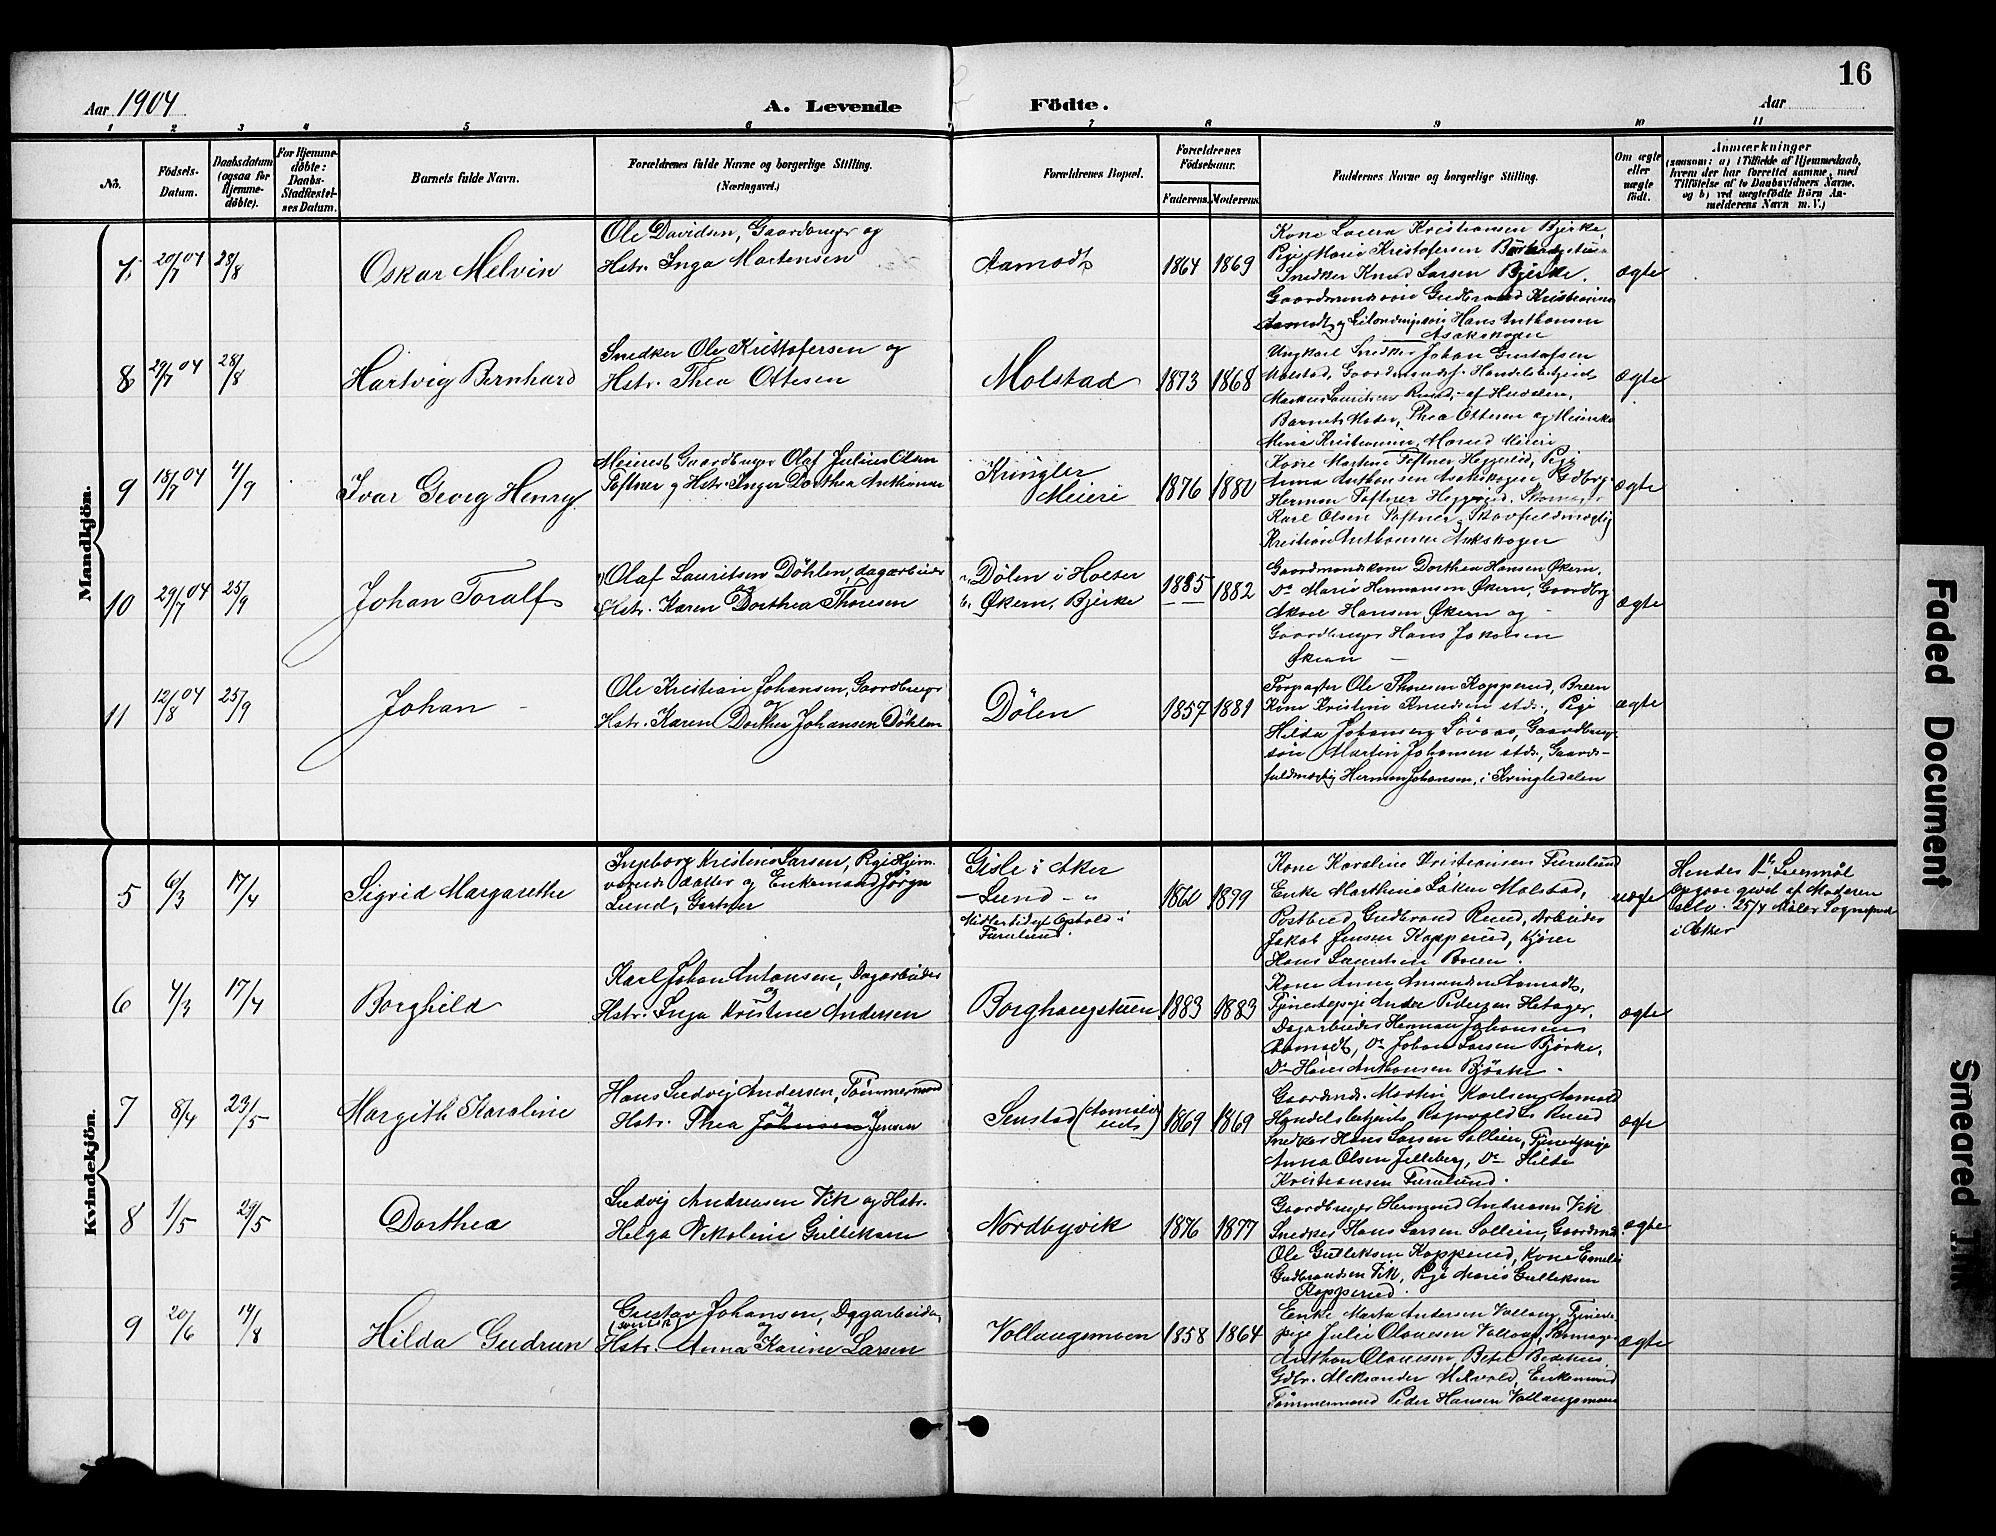 16
Aar 1904
A. Levende Födte.
Aar
1 2 3 4 5 6 7 8 9 10 11
No.
Födsels-Datum.
Daabsdatum (ogsaa for Hjemme-döbte).
For Hjemme-döbte: Daabs-Stadfæstel-ses Datum.
Barnets fulde Navn.
Forældrenes fulde Navne og borgerlige Stilling.
(Næringsvei.)
Forældrenes Bopæl.
Forældrenes Födselsaar.
Faderens. Moderens.
Faddernes Navne og borgerlige Stilling.
Om ægte eller uægte födt.
Anmærkninger
(saasom: a) i Tilfælde af Hjemmedaab,
hvem der har forrettet samme, med
Tilföielse af to Daabsvidners Navne,
og b) ved uægtefödte Börn An-
melderens Navn m. V.)
Mandkjön.
7. 20/7 04 28/8 Oskar Melvin
Ole Davidsen, Gaardbruger og
Hstr. Inga Martensen
Aamodt 1864 1869
Kone Laura Kristiansen Bjerke,
Pige Marie Kristofersen
Snedker Knud Larsen Bjerke.
Gaardmandssön Gudbrand Kristiansen
Aamodt og Hans Anthonsen
Asakskogen
ægte
8 29/7 04 28/8 Hartvig Bernhard
Snedker Ole Kristofersen og
Hstr. Thea Ottesen
Molstad 1873 1868
Ungkarl Snedker Johan Gustafsen
Molstad, Handelsbetjent
Markus Lauritsen Ruud,
Barnets Moder, Thea Ottesen og Meierske
Mina Kristiansen, Meieri
ægte
9 18/7 04 4/9 Ivar Georg Henry
Meierist Gaardbruger Olaf Julius Olsen
Toftner og Hstr. Inger Dorthea Anthonsen
Kringler
Meieri 1876 1880
Kone Martine Toftner Heggerud, Pige
Anna Anthonsen Asakskogen, Gdbrg.
Herman Toftner Heggerud, Skomager
Karl Olsen Toftner, Skovfuldmægtig
Kristian Anthonsen Asakskogen
ægte
10 29/7 04 25/9 Johan Toralf
Olaf Lauritsen Döhlen, dagarbeider
og
Hstr. Karen Dorthea Thoresen
a. Dölen i Holter
b. Økern, Bjerke 1885 1882
Gaardmandskone Dorthea Hansen Økern,
Do Marie Hermansen Økern, Gaardbrg.
Hansen Økern og
Gaardbruger Hans Jakobsen
Økern
ægte
11 12/8 04 25/9 Johan
Ole Kristian Johansen, Gaardbruger
og
Hstr. Karen Dorthea Johansen Döhlen
Dölen 1857 1881
Forpagter Ole Thoresen Kopperud, Breen
Kone Kristine Knudsen stds., Pige
Hilda Johansen, Gaardbrug-
sön Martin Johansen stds., Gaards-
fuldmægtig Herman Johansen, i Kringledalen
ægte
Kvindekjön.
5 6/3 17/4 Sigrid Margarethe
Ingeborg Kristine Larsen, Pige Hjem-
værende datter og Enkemand Jörgen
Lund, Gartner
Gisle i Aker
— Lund — "
Midlertidigt Ophold i
Furulund. 1860 1879
Kone Karoline Kristiansen Furulund
Enke Marthine Molstad,
Postbud, Gudbrand Ruud, Arbeider
Jakob Jensen Kopperud, kjörer
Hans Lauritsen Breen.
uægte
Hendes
Opgave givet af Moderen
selv. 25/4 Sognepræst
i Aker
6 4/3 17/4 Borghild
Karl Johan Antonsen, Dagarbeider
og
Hstr. Inga Kristine Andersen
Borghaugstuen 1883 1883
Kone Anne Amundsen Aamodt,
Tjenestepige Pedersen,
Dagarbeider Herman Johansen
Aamodt, Do Johan Larsen Bjerke,
Do Hans Anthonsen Bjerke.
ægte
7 8/4 23/5 Margith Karoline
Hans Ludvig Andersen, Tömmermand
og
Hstr. Thea Johansen Jensen
1869 1869
Martin Karlsen Aamodt
Handelsbetjent Ragnvald Ruud
Snedker Hans Larsen Sollien, Tjenestepige
Anna Olsen Jelleberg, Do Hilda
Kristiansen Furulund.
ægte
8 1/5 29/5 Dorthea
Ludvig Andreasen Vik og Hstr.
Helga Nikoline Gulliksen
Nordbyvik 1876 1877
Gaardbruger Hermand Andreasen Vik
Snedker Hans Larsen Sollien, Gaardmd.
Ole Gulliksen Kopperud, Kone
Gudbrandsen Vik, Pige Maren Gulliksen
Kopperud.
ægte
9 20/6 14/8 Hilda Gudrun
Gustav Johansen, Dagarbeider,
(svensk) og
Hstr. Anna Karine Larsen
Vollaugsmoen 1858 1864
Enke Marta Andersen Vollaug, Tjeneste-
pige Julie Olausen Vollaug, Skomager
Anthon Olausen, Betel Bedehus,
Gdbr. Aleksander Melvold, Enkemand
Tömmermand Peder Hansen Vollaugsmoen
ægte
Faded Document
Smeared Ink